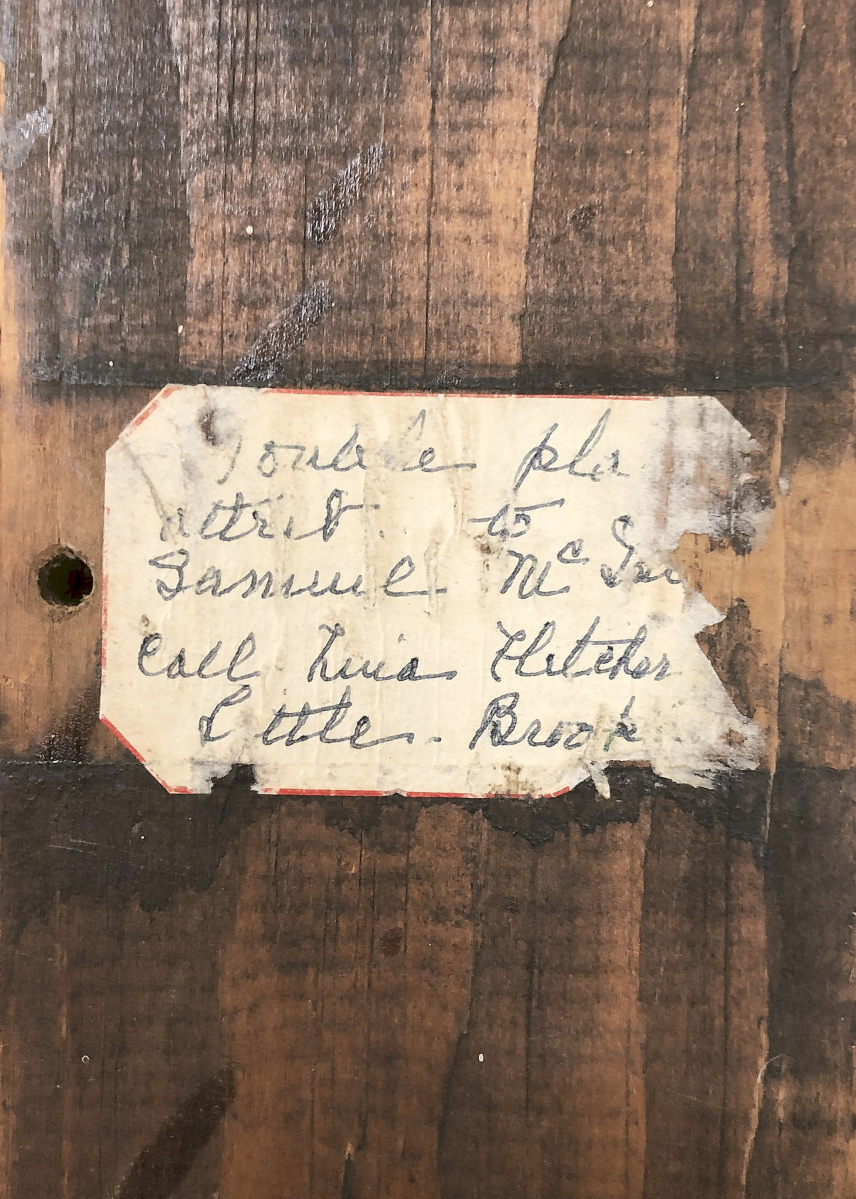 Double pla
attrib. to
Samuel McGou
Call Fletcher
Little Brook